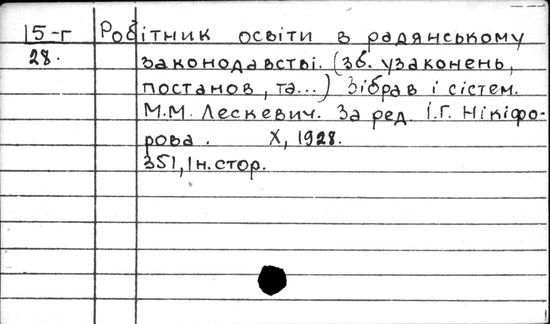 15-г Робітник освіти в радянському
28. законодавстві. (зб. узаконень,
постанов, та...) Зібрав і сістем.
М.М. Лескевич. За ред. І.Г. Нікіфо-
рова. Х, 1928.
351, Ін. стор.